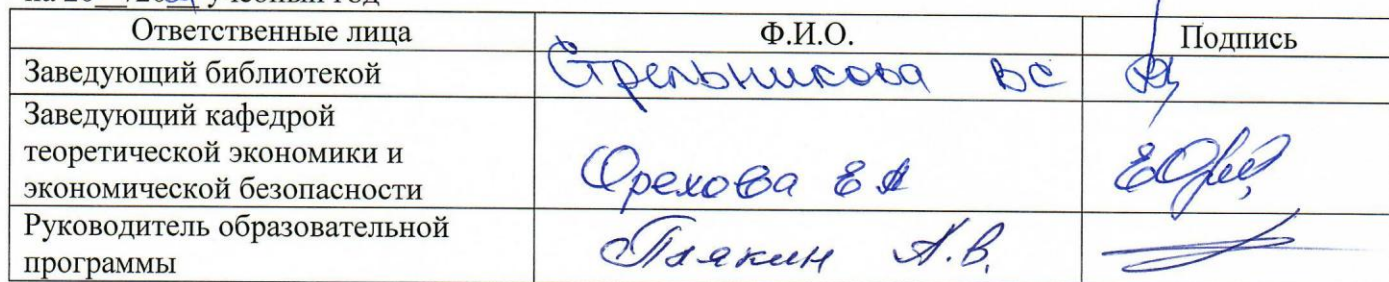 учебный год
Ответственные лица Ф.И.О. Подпись
Заведующий библиотекой Стрельникова ВС
Заведующий кафедрой
теоретической экономики и
экономической безопасности Орехова ЕА
Руководитель образовательной
программы Плякин А.В.